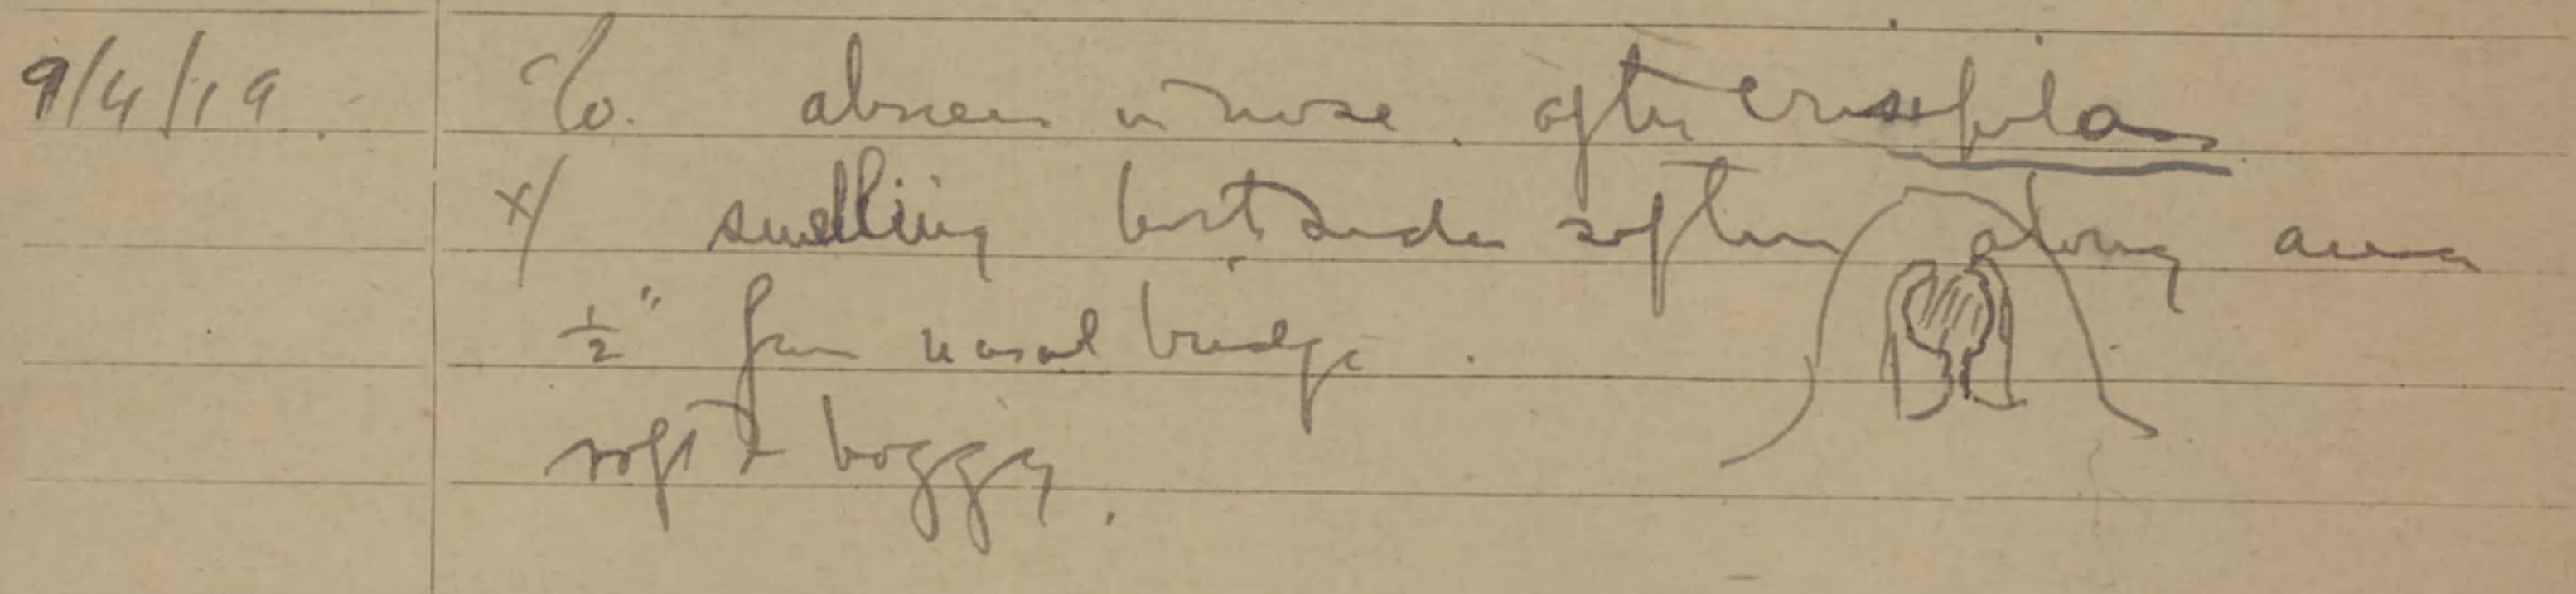 9/4/19. C/o. abscess in nose. after erysipelas
x/ swelling both sides septum along area
1/2" from nasal bridge.
soft & boggy.